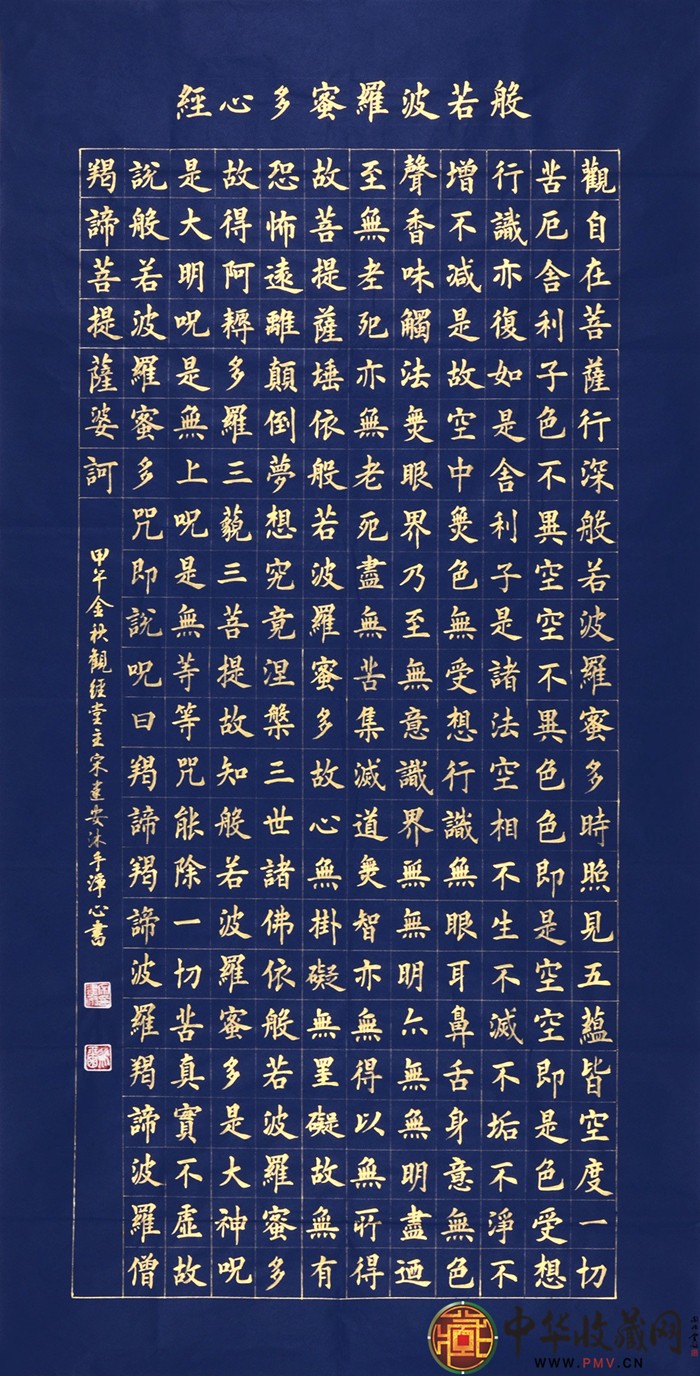 般若波羅蜜多心經
觀自在菩薩行深般若波羅蜜多時照見五蘊皆空度一切
苦厄舍利子色不異空空不異色色即是空空即是色受想
行識亦復如是舍利子是諸法空相不生不滅不垢不淨不
增不減是故空中無色無受想行識無眼耳鼻舌身意無色
聲香味觸法無眼界乃至無意識界無無明亦無無明盡迺
至無老死亦無老死盡無苦集滅道無智亦無得以無所得
故菩提薩埵依般若波羅蜜多故心無掛礙無罣礙故無有
恐怖遠離顛倒夢想究竟涅槃三世諸佛依般若波羅蜜多
故得阿耨多羅三藐三菩提故知般若波羅蜜多是大神呪
是大明呪是無上呪是無等等咒能除一切苦真實不虛故
說般若波羅蜜多咒即說呪曰羯諦羯諦波羅羯諦波羅僧
羯諦菩提薩婆訶
甲午金秋觀經堂主宋建安沐手淨心書
中华收藏网
WWW.PMV.CN